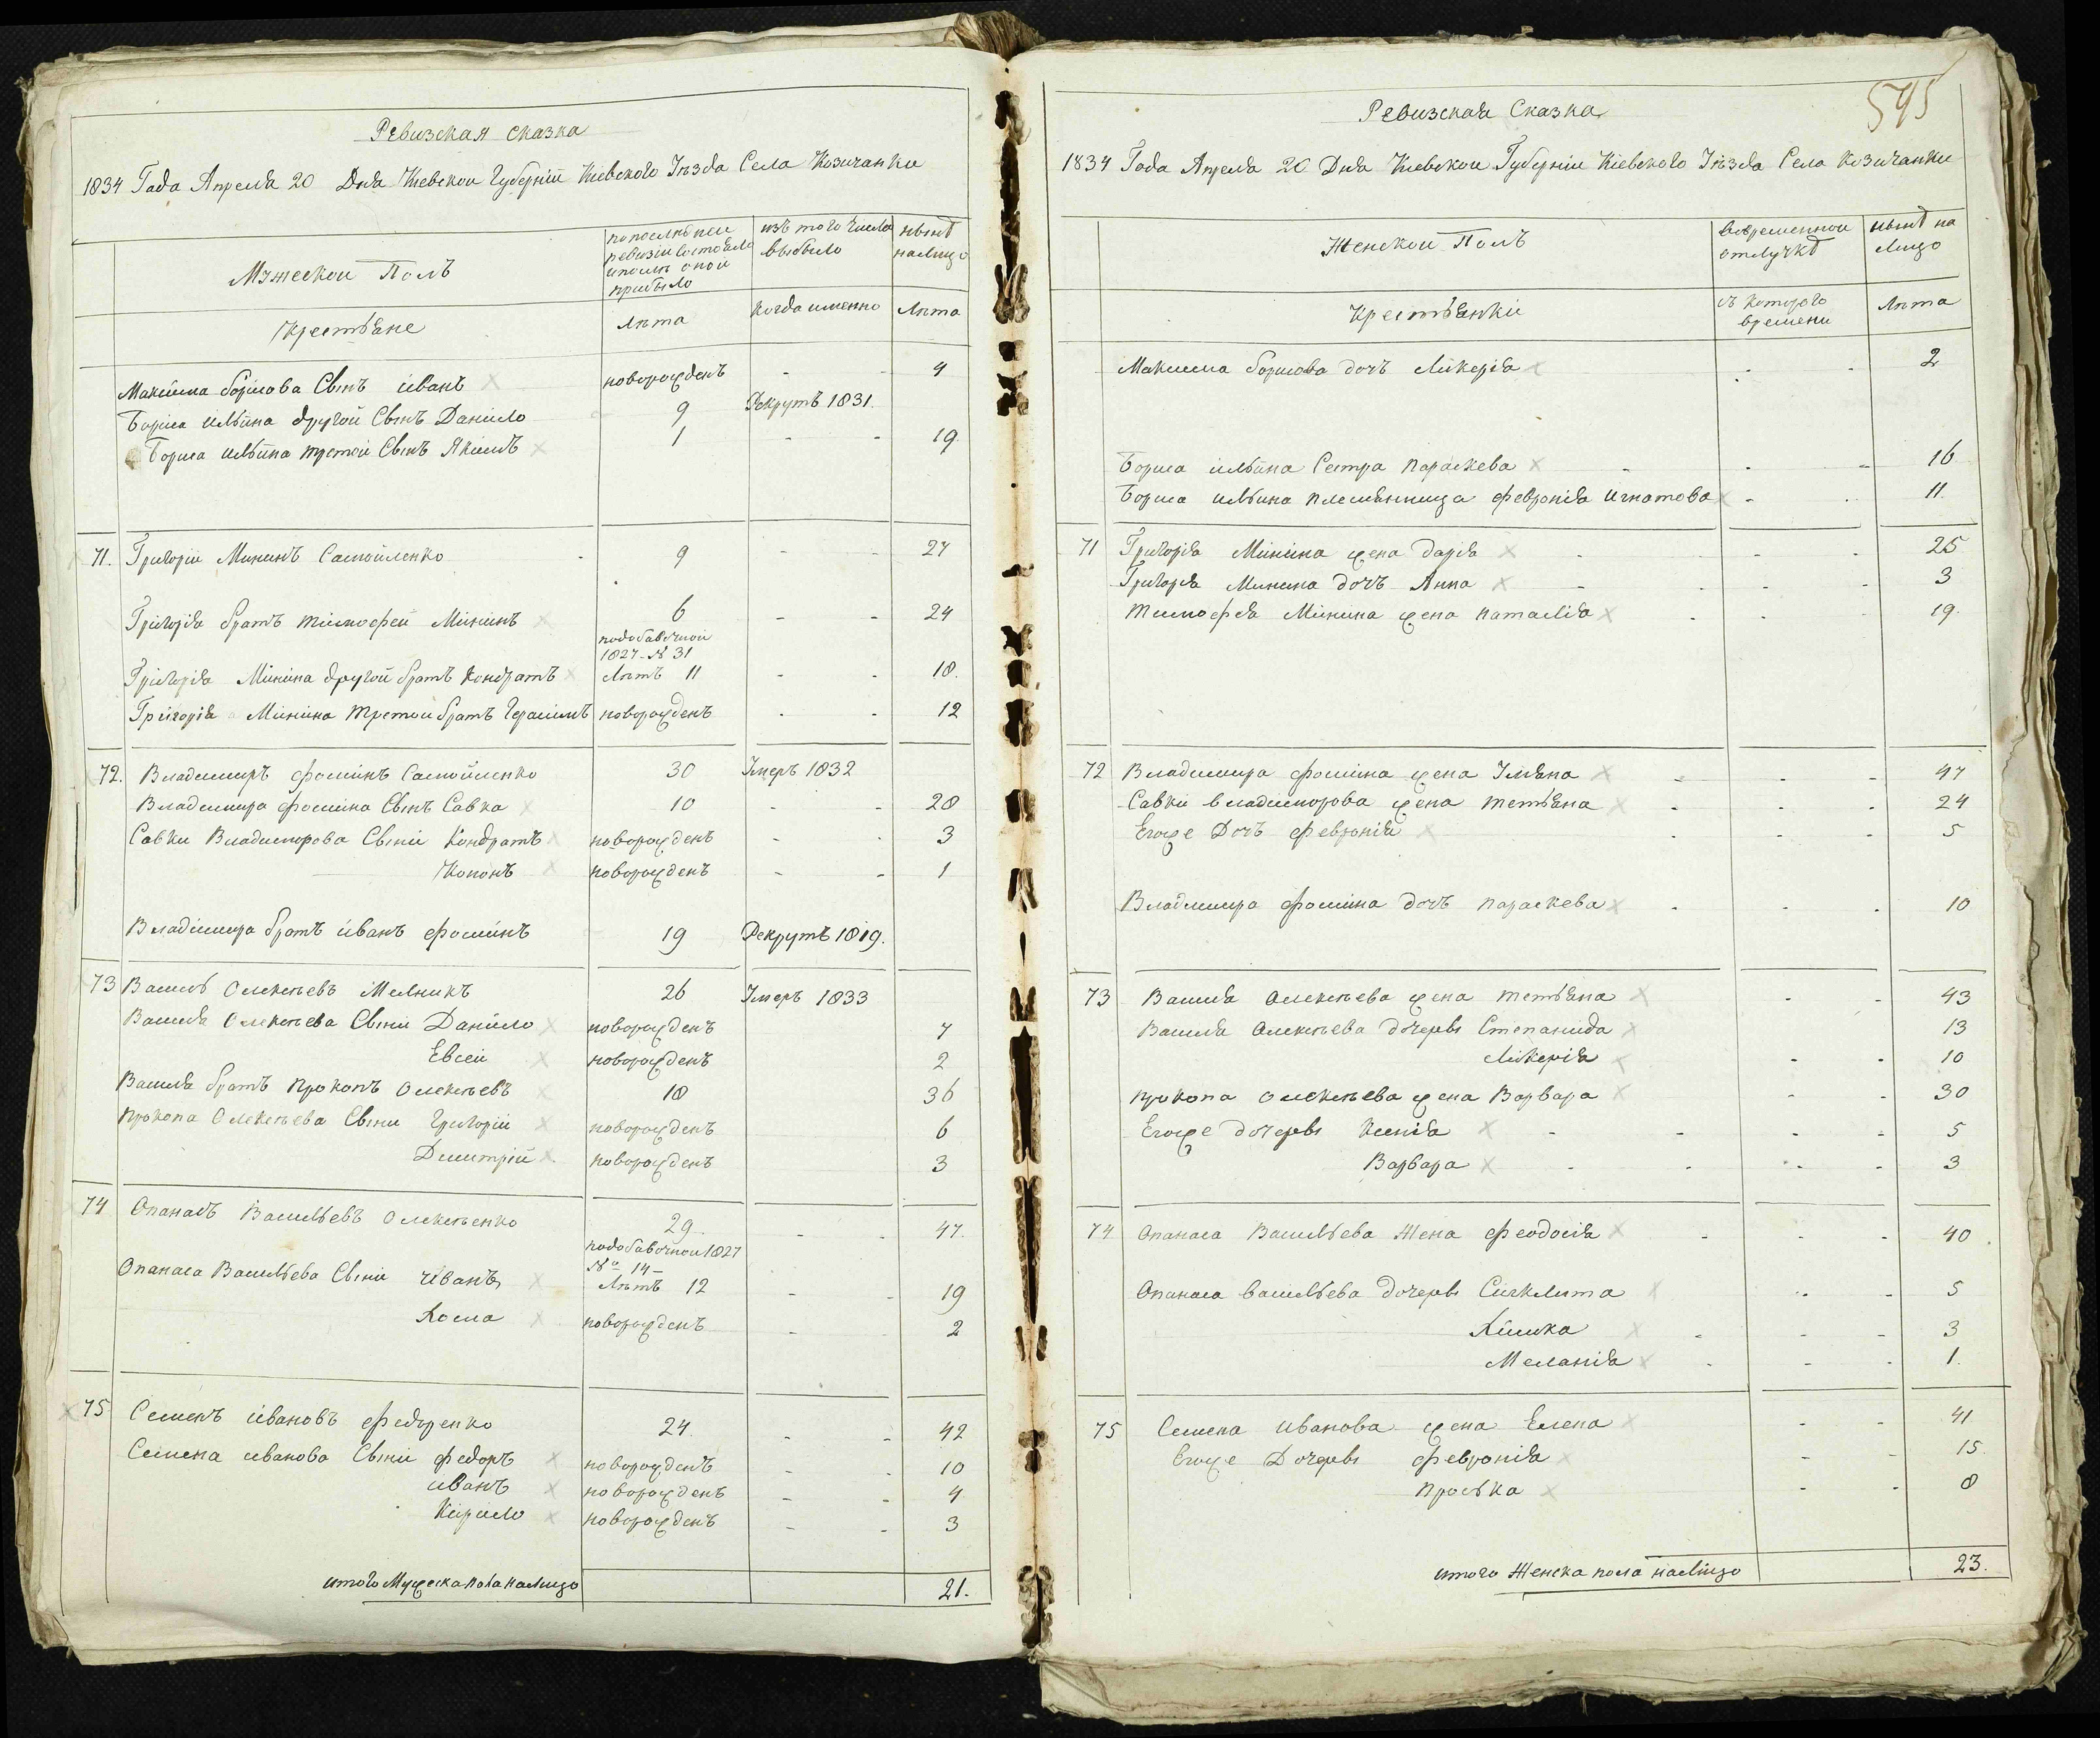 Ревизская сказка
1834 Года Апреля 20 Дня Киевской Губерніи Кіевского Уѣзда Села Козичанки
Мужеской Полъ
по последней ревизіи состояло и после оной прибыло
изъ того числа выбыло
нынѣ на лицо
Крестьяне
Лѣта
когда именно
Лѣта
Максима борисова Сынъ иванъ новорожденъ - - 4
Бориса ильина другой Сынъ Данило 9 Рекрутъ 1831.
Бориса ильина третій Сынъ Якимъ 1 - - 19.
71. Григорій Мининъ Самойленко - 9 - - 27
Григорія братъ тимофей Мининъ 6 - - 24
по добавочной
1827 № 31
Григорія Минина другой братъ Кондратъ Лѣтъ 11 - - 18.
Григорія Минина третой братъ Герасимъ новорожденъ - - 12
72. Владимиръ фоминъ Самойленко 30 Умеръ 1832
Владимира фомина Сынъ Савка 10 - - 28
Савки Владимирова Сыни Кондратъ новорожденъ - - 3
Кононъ новорожденъ - - 1
Владимира братъ иванъ фоминъ 19 Рекрутъ 1819.
73 Василь Олексѣевъ Мелникъ 26 Умеръ 1833
Василя Олексѣева Сыни Данило новорожденъ 7
Евсей новорожденъ 2
Василя братъ Прокопъ Олексѣевъ 18 36
Прокопа Олексѣева Сыни Григорій новорожденъ 6
Димитрій новорожденъ 3
74 Опанасъ Васильевъ Олексѣенко 29 - - 47.
по добавочной 1827
№ 14
Опанаса Васильева Сыни Иванъ Лѣтъ 12 - - 19
Косма новорожденъ - - 2
75 Семенъ ивановъ федоренко 24. - - 42
Семена иванова Сыни федоръ новорожденъ - - 10
иванъ новорожденъ - - 4
Кирило новорожденъ - - 3
итого Мужеска пола на лицо 21.
595
Ревизская Сказка
1834 Года Апреля 20 Дня Киевской Губерніи Кіевского Уѣзда Села Козичанки
Женской Полъ
во временной отлучкѣ
нынѣ на лицо
Крестьянки
съ которого времени
Лѣта
Максима борисова дочъ Ликерія - - 2
Бориса ильина Сестра параскева - - - 16
Бориса ильина племянница февронія Игнатова - - 11.
71 Григорія Минина жена дарія - - - 25
Григорія Минина дочъ Анна - - - 3
тимофея Минина жена наталія - - - 19.
72 Владимира фомина жена Уляна - - - 47
Савки владимирова жена тетьяна - - - 24
Егоже Дочъ февронія - - - 5
Владимира фомина дочъ параскева - - - 10
73 Василя Олексѣева жена тетьяна - - 43
Василя Олексѣева дочеры Степанида 13
Ликерія - - 10
прокопа Олексѣева жена Варвара - - 30
Егоже дочеры Ксенія - - - - 5
Варвара - - - - 3
74 Опанаса Васильева Жена феодосія - - - 40.
Опанаса васильева дочеры Сиклита - - 5
Химка - - - 3
Меланія - - - 1.
75 Семена Иванова жена Елена - - 41
Егоже Дочеры февронія - - 15.
Проська - - 8
итого Женска пола на лицо 23.